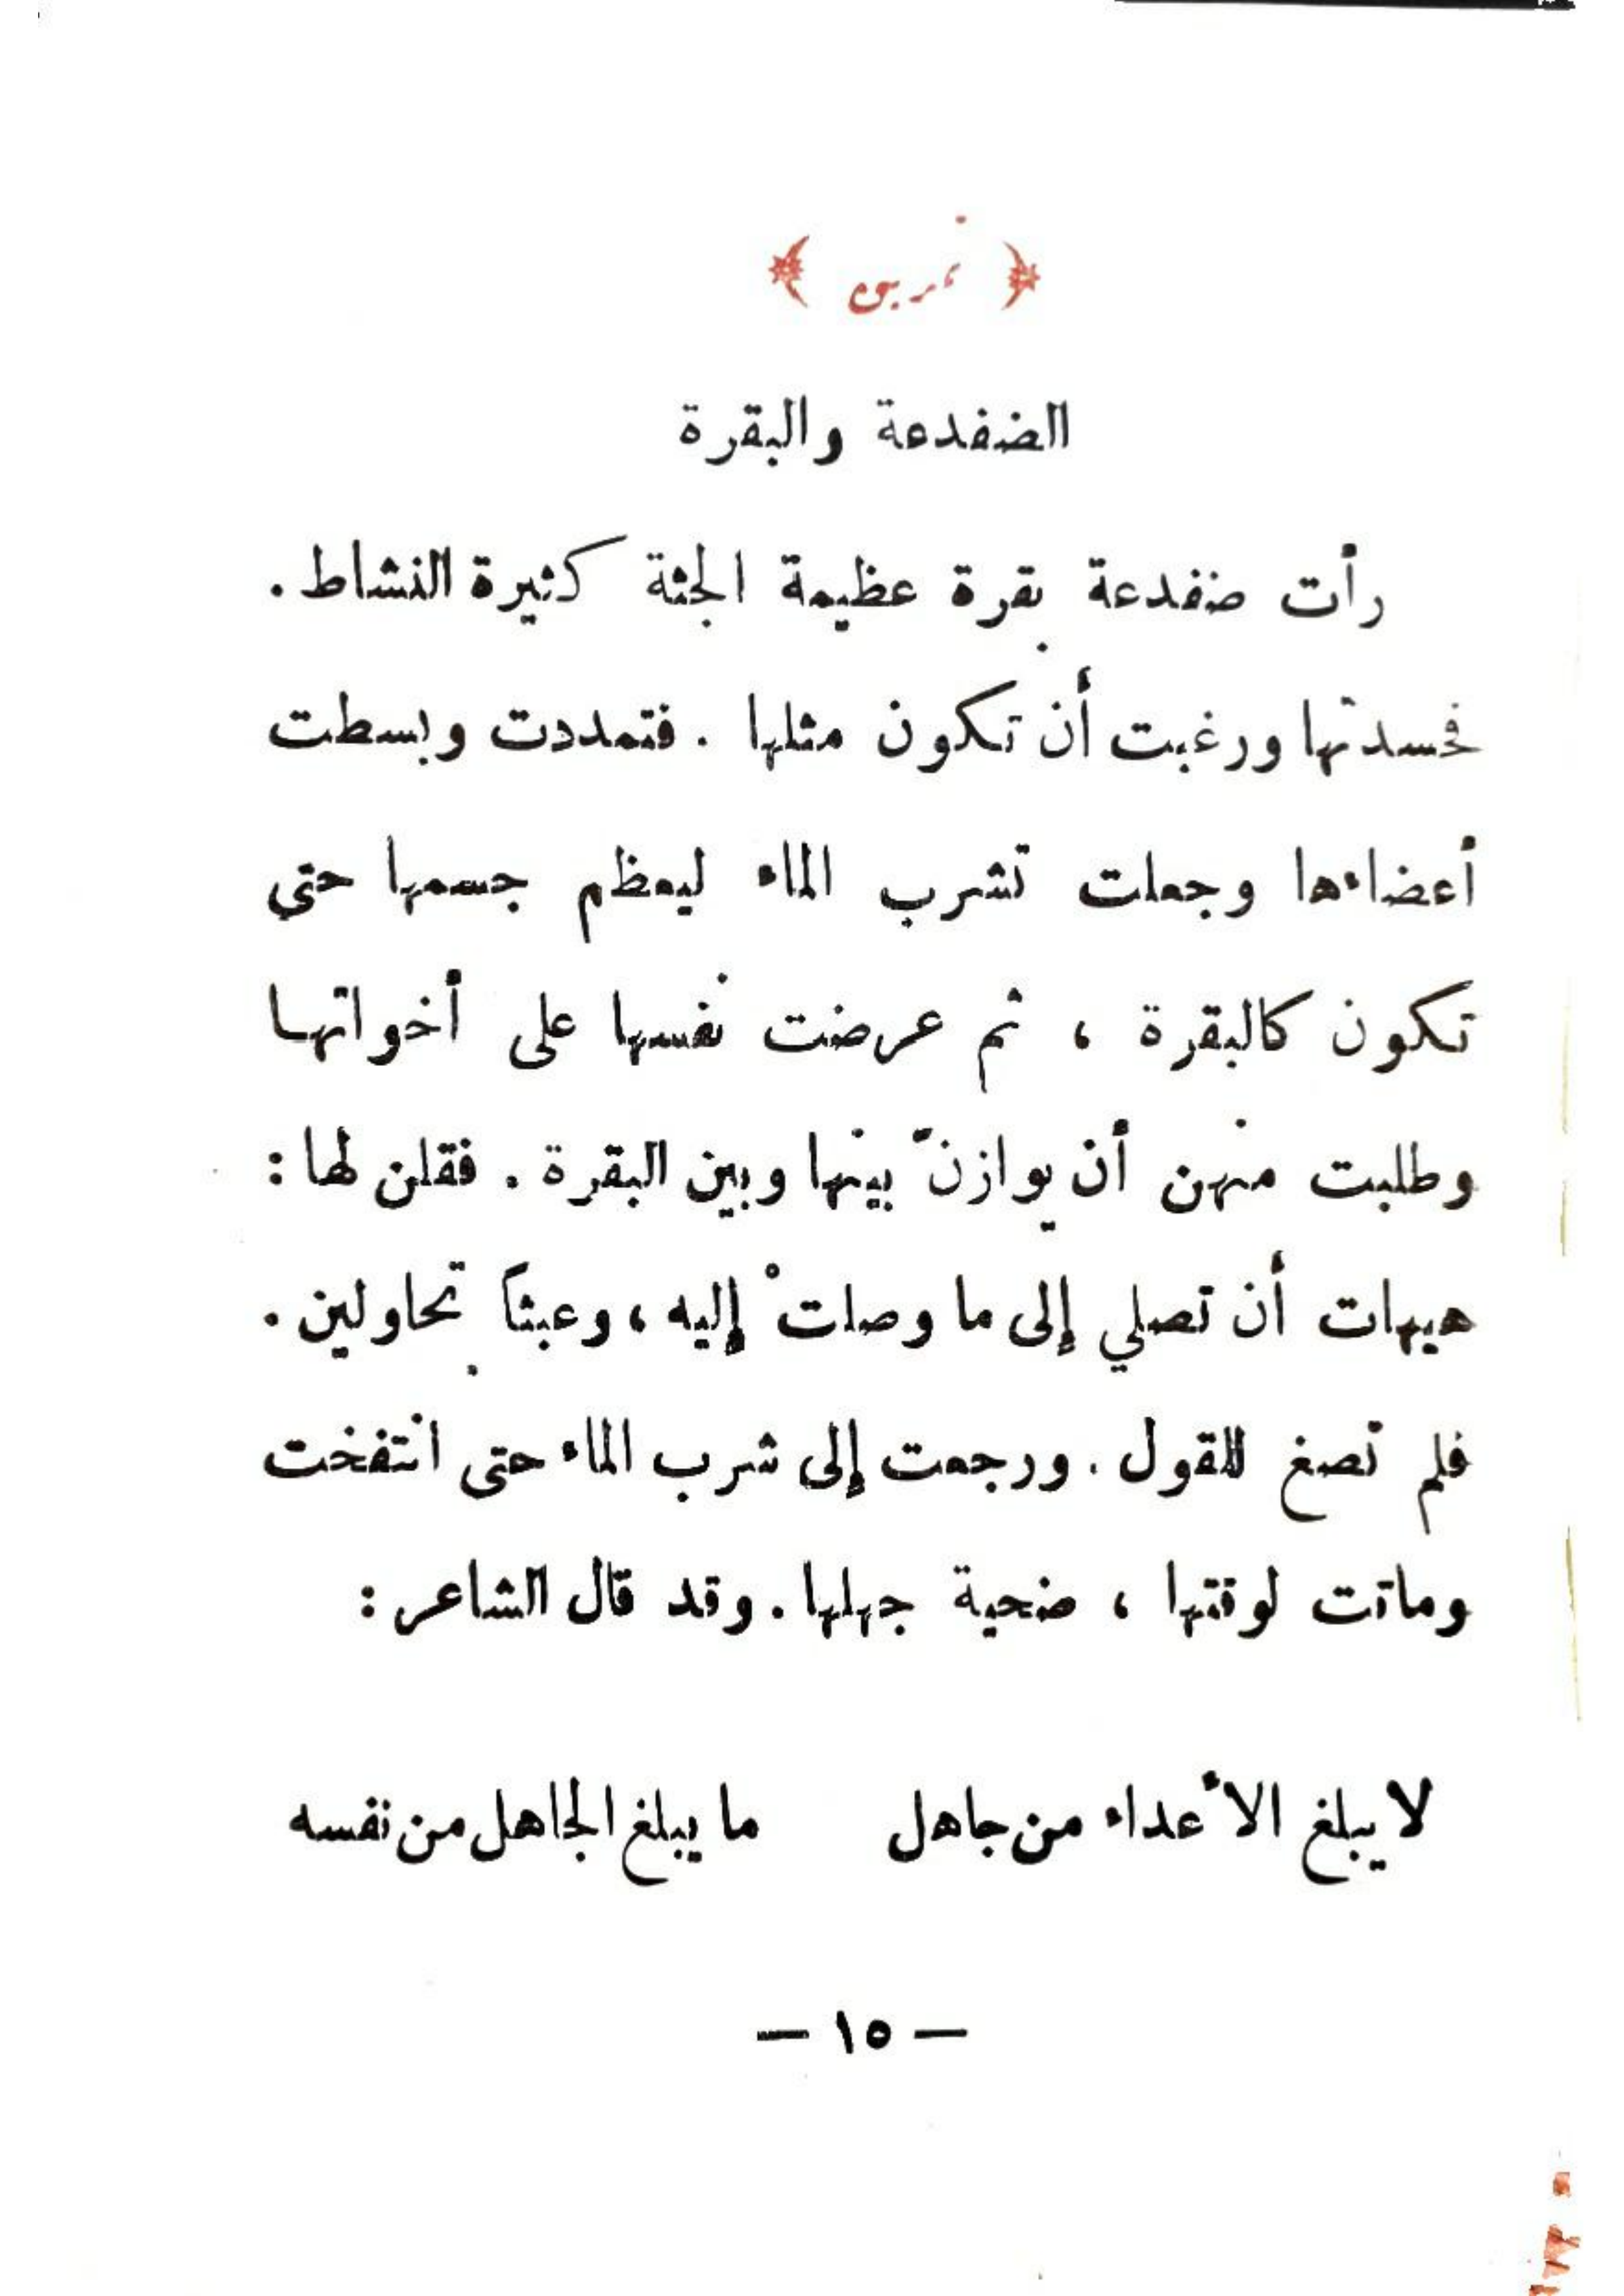 الضفدعة والبقرة
رأت ضفدعة بقرة عظيمة الجثة كثيرة النشاط .
فحسدتها ورغبت أن تكون مثلها . فتمددت وبسطت
أعضاءها وجعلت تشرب الماء ليعظم جسمها حتى
تكون كالبقرة ، ثم عرضت نفسها على أخواتها
وطلبت منهن أن يوازنّ بينها وبين البقرة . فقلن لها :
هيهات أن تصلي إلى ما وصلتْ إليه ، وعبثاً تحاولين .
فلم تصغ للقول . ورجعت إلى شرب الماء حتى انتفخت
وماتت لوقتها ، ضحية جهلها . وقد قال الشاعر :
لا يبلغ الأعداء من جاهل ما يبلغ الجاهل من نفسه
— ١٥ —